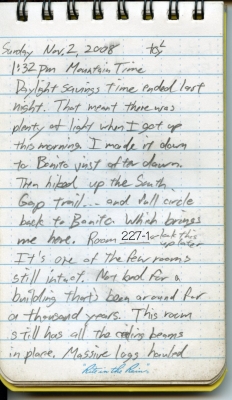 Sunday Nov. 2, 2008
1:32 pm Mountain Time
Daylight savings time ended last
night. That meant there was
plenty of light when I got up
this morning. I made it down
to Bonito just after dawn.
Then hiked up the South
Gap trail... and full circle
back to Bonito. Which brings
me here. Room 227-1 or look this
up later
It's one of the few rooms
still intact. Not bad for a
building that's been around for
a thousand years. This room
still has all the ceiling beams
in place. Massive logs hauled
"Rite in the Rain"